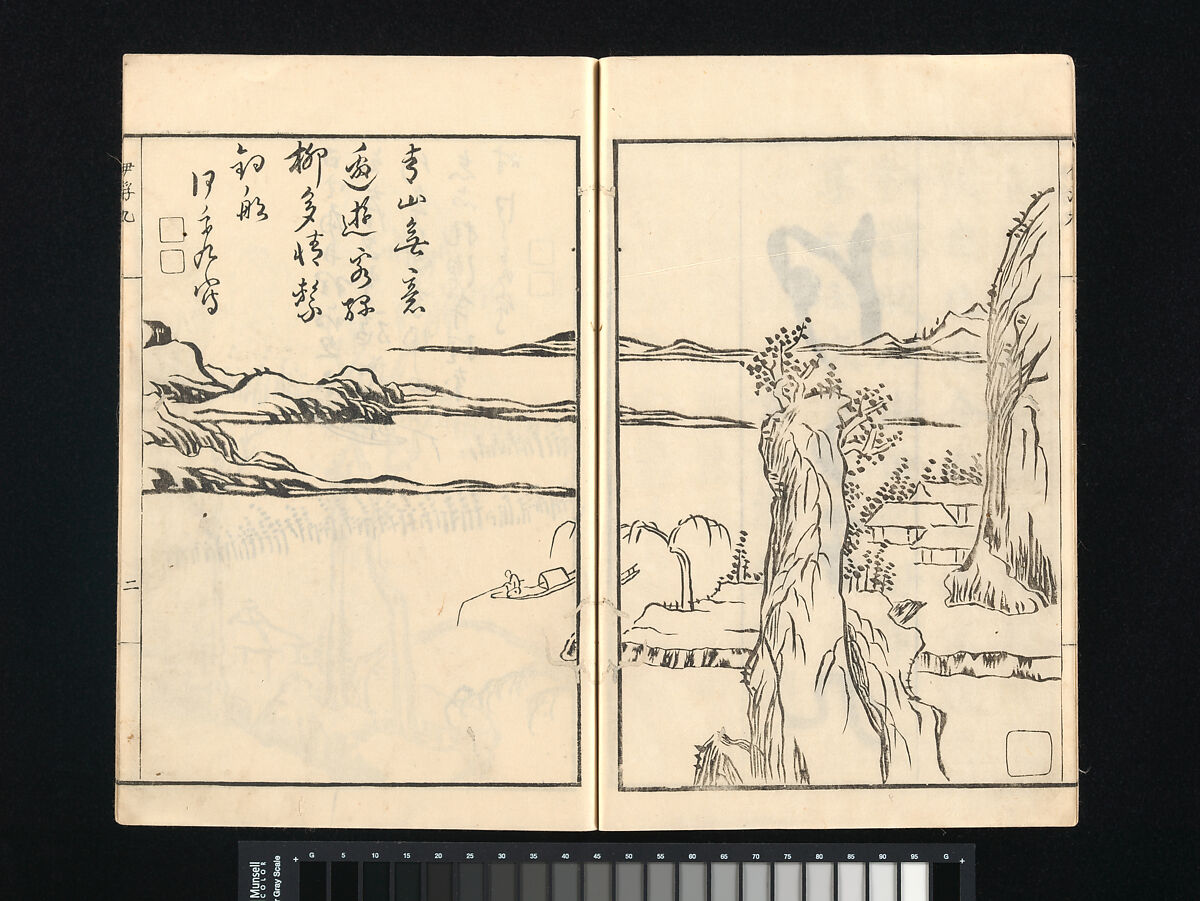 青山無意
邀遊客綠
柳多情繫
釣船
伊孚九寫
伊孚九
二
Munsell
COLOR
Gray Scale
G 5 10 15 20 25 30 35 40 45 50 55 60 65 70 75 80 85 90 95 G